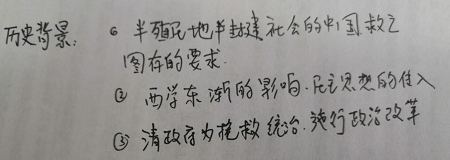 历史背景: ① 半殖民地半封建社会的中国救亡
图存的要求.
② 西学东渐的影响.民主思想的传入
③ 清政府为挽救统治.施行政治改革